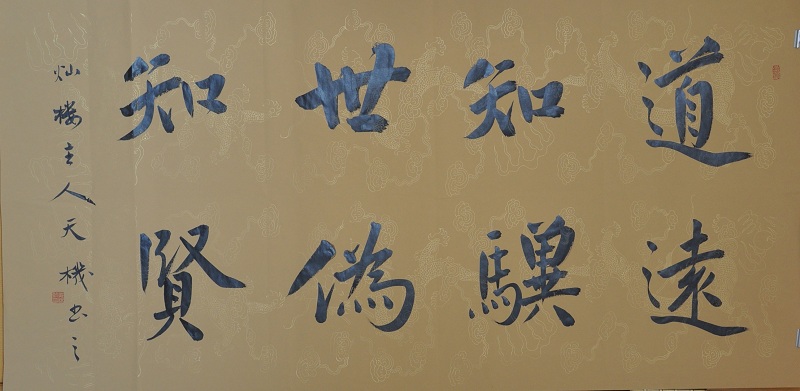 道遠
知驥
世偽
知賢
灿楼主人天機书之